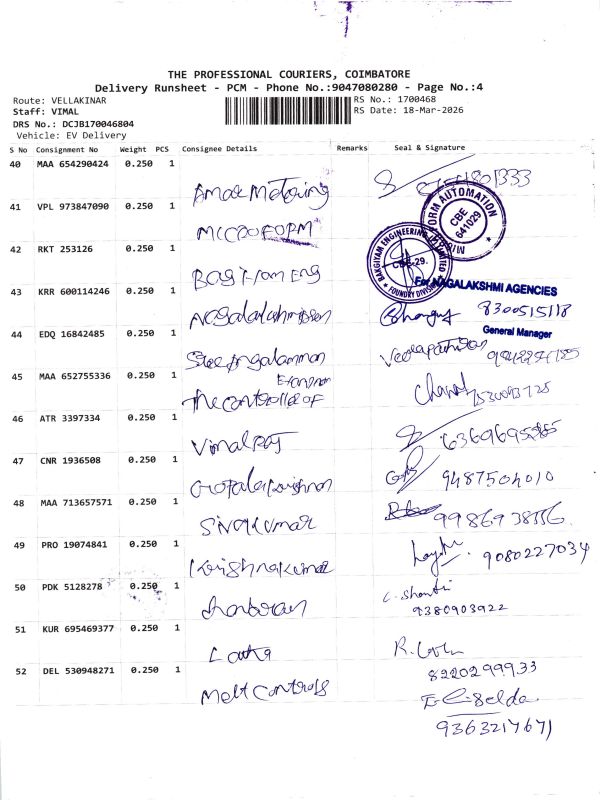 THE PROFESSIONAL COURIERS, COIMBATORE
Delivery Runsheet - PCM - Phone No.:9047080280 - Page No.:4
Route: VELLAKINAR
RS No.: 1700468
Staff: VIMAL
RS Date: 18-Mar-2026
DRS No.: DCJB170046804
Vehicle: EV Delivery
S No Consignment No Weight PCS Consignee Details Remarks Seal & Signature
40 MAA 654290424 0.250 1
41 VPL 973847090 0.250 1
MICROFORM
FORM AUTOMATION
CBE
641029
42 RKT 253126 0.250 1
BAKGIYAM ENGINEERING
CBE-29.
FOUNDRY DIVISION
43 KRR 600114246 0.250 1
For NAGALAKSHMI AGENCIES
8300515118
General Manager
44 EDQ 16842485 0.250 1
45 MAA 652755336 0.250 1
The controller of
46 ATR 3397334 0.250 1
Vimalraj
47 CNR 1936508 0.250 1
Gopalakrishnan
9487504010
48 MAA 713657571 0.250 1
Sivakumar
49 PRO 19074841 0.250 1
Krishnakumar
9080227034
50 PDK 5128278 0.250 1
C. Shanthi
9380903922
51 KUR 695469377 0.250 1
Latha
R. Latha
8220299933
52 DEL 530948271 0.250 1
Melt Controls
9363217671